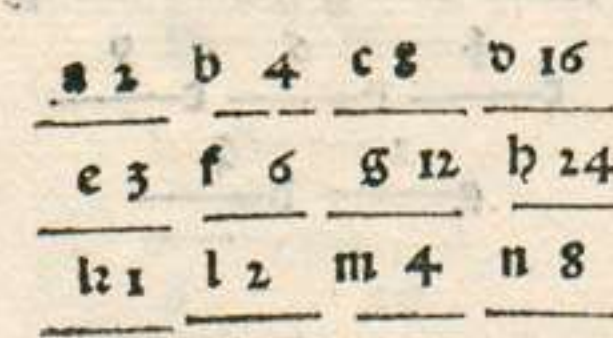 a 2 b 4 c 8 d 16
e 3 f 6 g 12 h 24
k 1 l 2 m 4 n 8